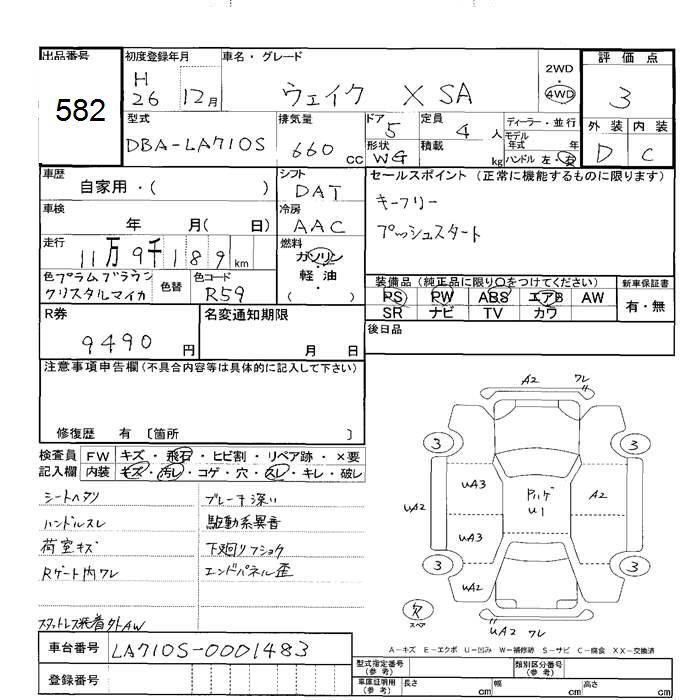 出品番号
582
初度登録年月
H
26 12月
車名・グレード
ウェイク X SA
2WD
・
4WD
評価点
3
外装 内装
D C
型式
DBA-LA710S
排気量
660 cc
ドア
5
定員
4 人
形状
WG
積載
kg
ディーラー・並行
モデル
年式 年
ハンドル 左・右
車歴
自家用・( )
シフト
DAT
車検
年 月( 日)
冷房
AAC
走行
11万9千189km
燃料
ガソリン
・
軽油
・
( )
色 プラムブラウン
クリスタルマイカ
色替
色コード
R59
セールスポイント (正常に機能するものに限ります)
キーフリー
プッシュスタート
装備品(純正品に限り○をつけてください)
PS PW ABS エアB AW
SR ナビ TV カワ
新車保証書
有・無
後日品
R券
9490円
名変通知期限
月 日
注意事項申告欄(不具合内容等は具体的に記入して下さい)
修復歴 有 〔箇所 〕
検査員
記入欄
FW キズ・飛石・ヒビ割・リペア跡・×要
内装 キズ・汚レ・コゲ・穴・スレ・キレ・破レ
シートヘタリ
ハンドルスレ
荷室キズ
Rゲート内ワレ
スタットレス装着外AW
ブレーキ深い
駆動系異音
下廻りフショク
エンドパネル歪
A2 ワレ
3 3
UA3
UA2
UA3
UA2
Pハゲ
U1
A2
3 3
欠
スペア
UA2 ワレ
A-キズ E-エクボ U-凹み W-補修跡 S-サビ C-腐食 XX-交換済
車台番号
LA710S-0001483
登録番号
型式指定番号
(参考)
類別区分番号
(参考)
車庫証明用
(参考)
長さ cm 幅 cm 高さ cm